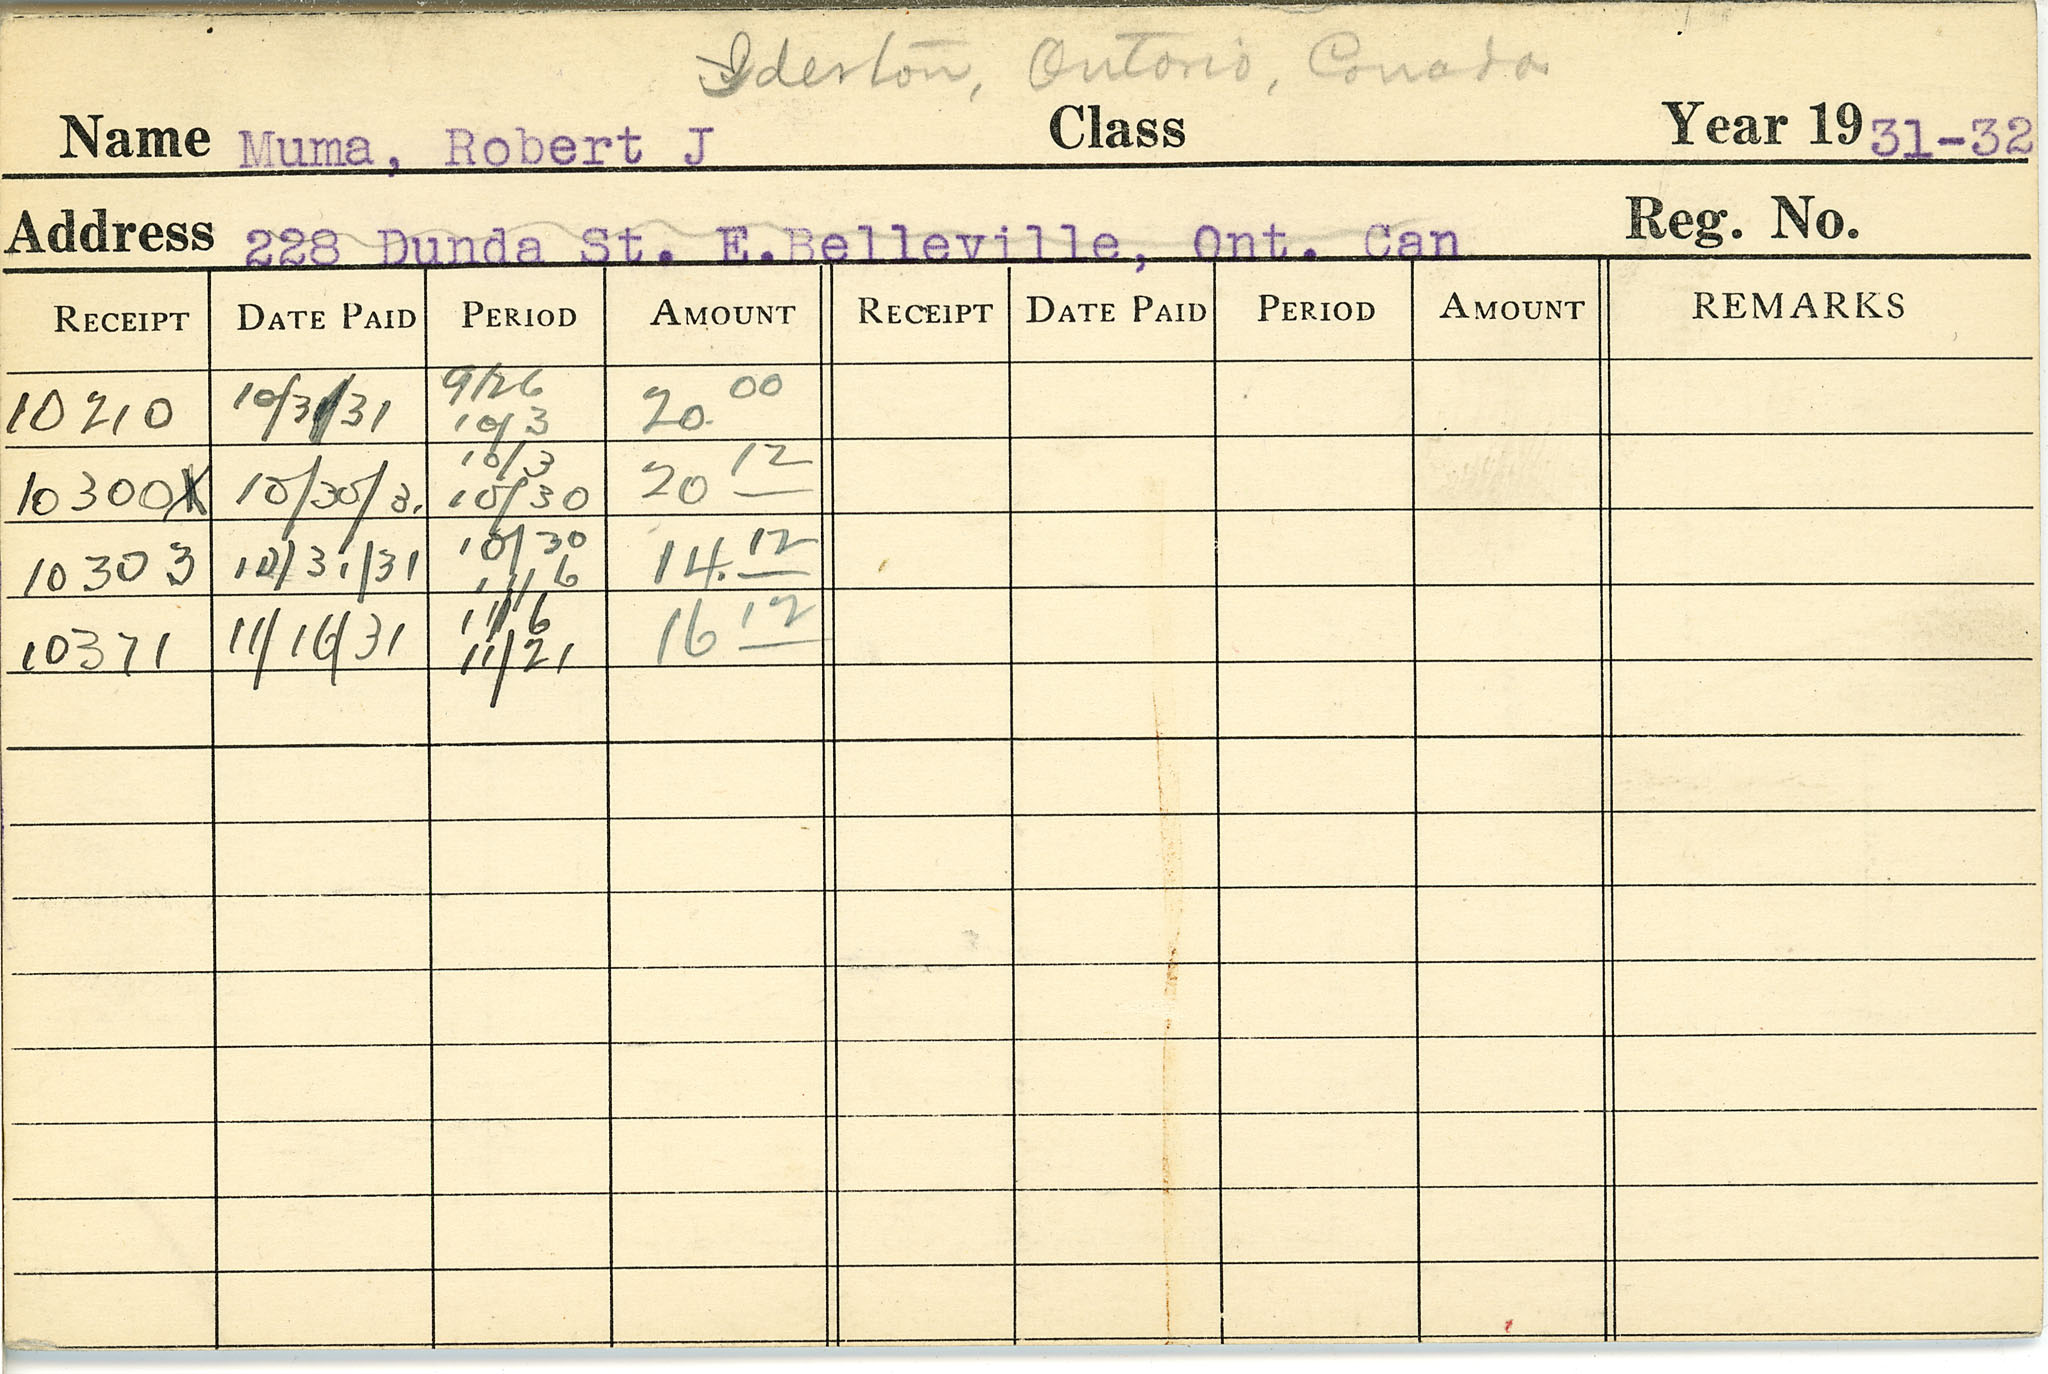 Iderton, Ontario, Canada
Name Muma, Robert J Class Year 1931-32
Address 228 Dunda St. E.Belleville, Ont. Can Reg. No.
RECEIPT DATE PAID PERIOD AMOUNT RECEIPT DATE PAID PERIOD AMOUNT REMARKS
10210 10/3/31 9/26 10/3 20.00
10300 10/30/3. 10/3 10/30 20 12
10303 10/31/31 10/30 11/6 14.12
10371 11/16/31 11/6 11/21 16 12